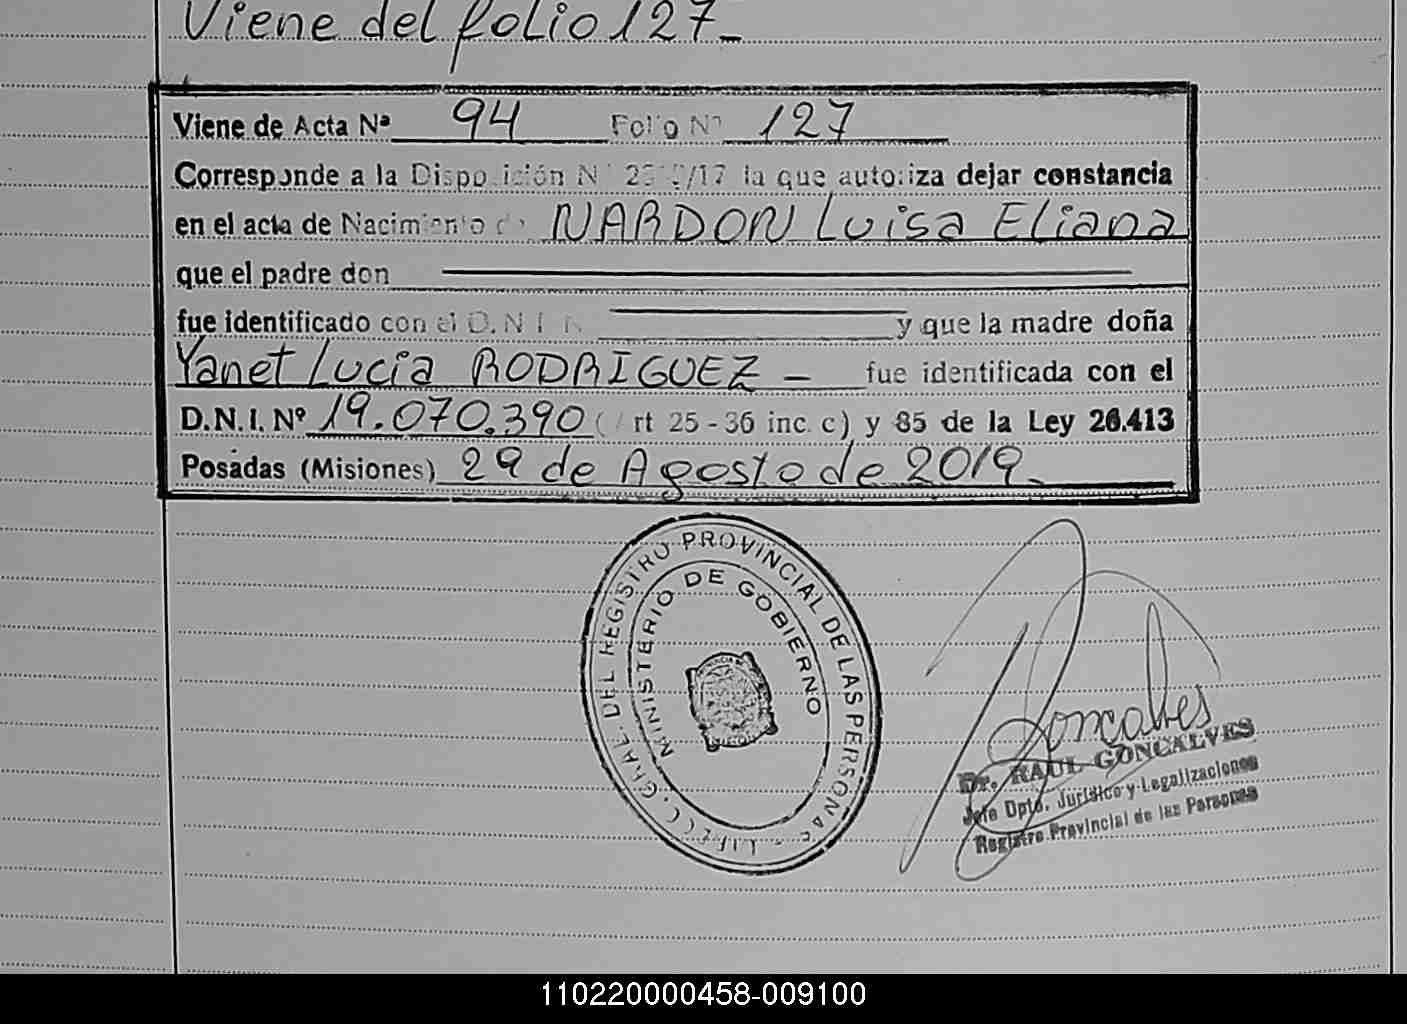 Viene del folio 127_
Viene de Acta Nª 94 Folio Nº 127
Corresponde a la Disposición Nº /17 la que autoriza dejar constancia
en el acta de Nacimiento de NARDON Luisa Eliana
que el padre don
fue identificado con el D.N.I. Nº y que la madre doña
Yanet Lucia RODRIGUEZ — fue identificada con el
D.N.I. Nº 19.070.390 (Art 25 - 36 inc. c) y 85 de la Ley 26.413
Posadas (Misiones) 29 de Agosto de 2019_
GRAL. DEL REGISTRO PROVINCIAL DE LAS PERSONAS
MINISTERIO DE GOBIERNO
Goncalves
Dr. RAUL GONCALVES
Jefe Dpto. Jurídico y Legalizaciones
Registro Provincial de las Personas
110220000458-009100